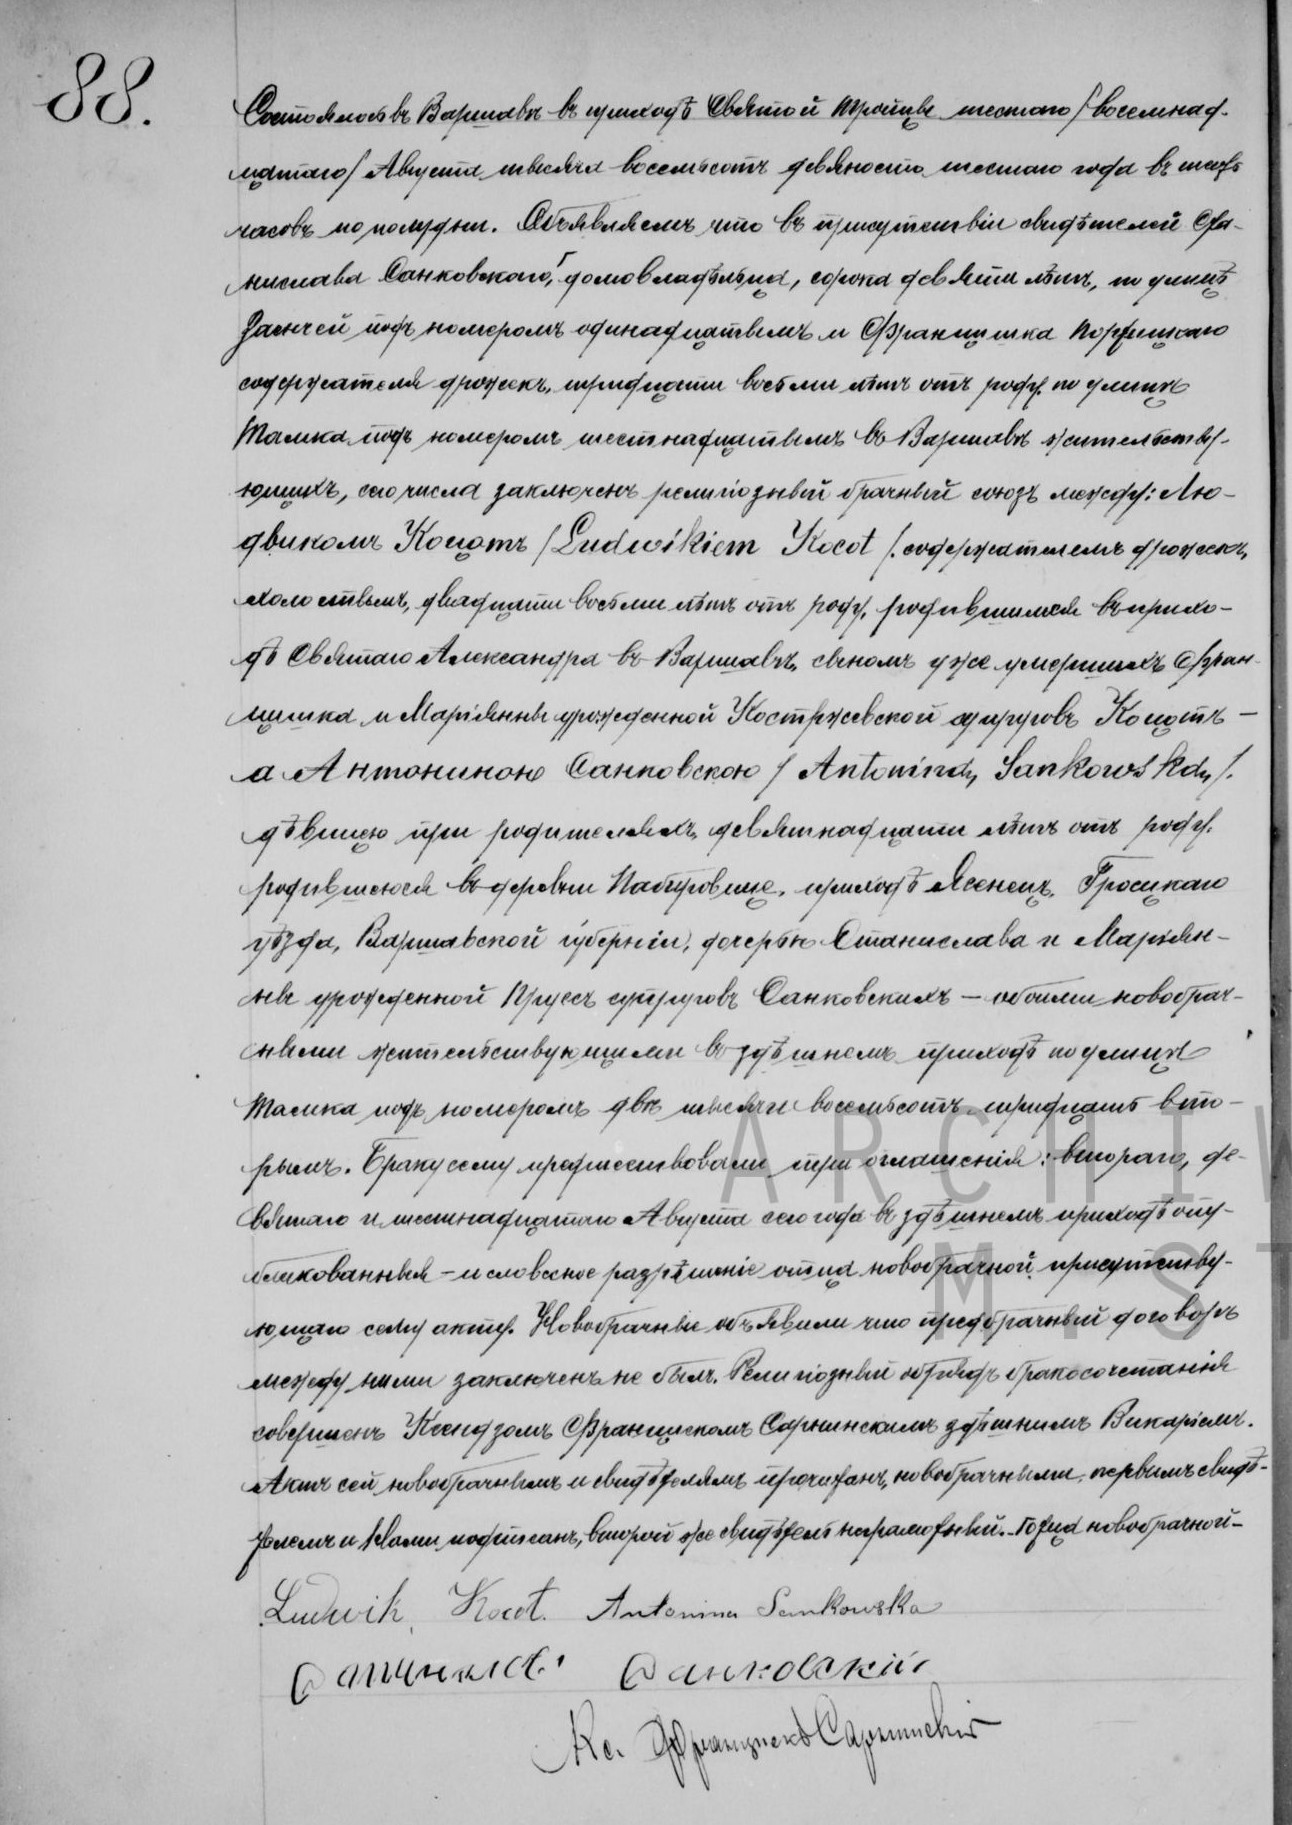 88.
Состоялось въ Варшавѣ въ приходѣ Святой Троицы шестаго /восемнад-
цатаго/ Августа тысяча восемьсотъ девяносто шестаго года въ шесть
часовъ по полудни. Объявляемъ что въ присутствіи свидѣтелей Ста-
нислава Санковскаго,⸢ домовладѣльца, сорока девяти лѣтъ, по улицѣ
Заячей подъ номеромъ одинадцатымъ и Францишка
содержателя дрожекъ, тридцати восьми лѣтъ отъ роду, по улицѣ
Тамка подъ номеромъ шестнадцатымъ въ Варшавѣ жительству-
ющихъ, сего числа заключенъ религіозный брачный союзъ между: Лю-
двикомъ Коцотъ /Ludwikiem Kocot/. содержателемъ дрожекъ,
холостымъ, двадцати восьми лѣтъ отъ роду, родившимся въ прихо-
дѣ Святаго Александра въ Варшавѣ, сыномъ уже умершихъ Фран-
цишка и Маріянны урожденной Костржевской супруговъ Коцотъ —
а Антониною Санковскою / Antoniną Sankowską /.
дѣвицею при родителяхъ, девятнадцати лѣтъ отъ роду.
родившеюся въ деревни Пабіровице, приходѣ Ясенецъ, Гроецкаго
уѣзда, Варшавской губерніи, дочерью Станислава и Маріян-
ны урожденной Прусъ супруговъ Санковскихъ — обоими новобрач-
ными жительствующими въ здѣшнемъ приходѣ по улицѣ
Тамка подъ номеромъ двѣ тысячи восемьсотъ тридцать вто-
рымъ. Браку сему предшествовали три оглашенія: втораго, де-
вятаго и шестнадцатаго Августа сего года въ здѣшнемъ приходѣ опу-
бликованныя — и словесное разрѣшеніе отца новобрачной, присутству-
ющаго сему акту. Новобрачные объявили что предбрачный договоръ
между ними заключенъ не былъ. Религіозный обрядъ бракосочетанія
совершенъ Ксендзомъ Францискомъ Сарнинскимъ здѣшнимъ Викаріемъ.
Актъ сей новобрачнымъ и свидѣтелямъ прочитанъ, новобрачными, первымъ свидѣ-
телемъ и Нами подписанъ, второй же свидѣтель неграмотный. ⸢отца новобрачной—
Ludwik Kocot. Antonina Sankowska
Станиславъ Санковскій
Кс. Францискъ Сарнинскій
ARCHIW
M ST